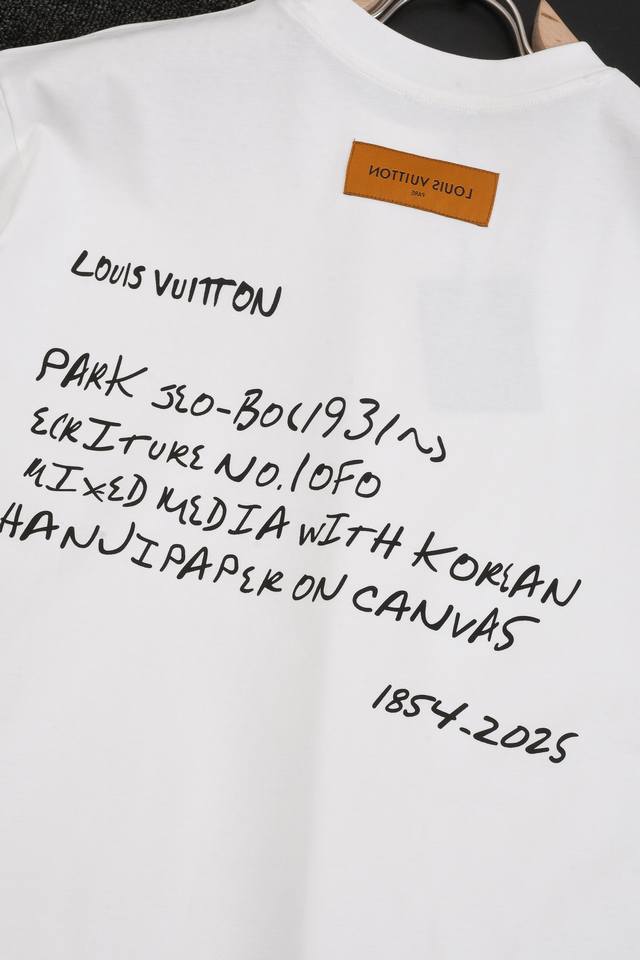 LOUIS VUITTON
PARIS
LOUIS VUITTON
PARK SEO-BO(1931~)
ECRITURE NO.10F0
MIXED MEDIA WITH KOREAN
HANJI PAPER ON CANVAS
1854-2025